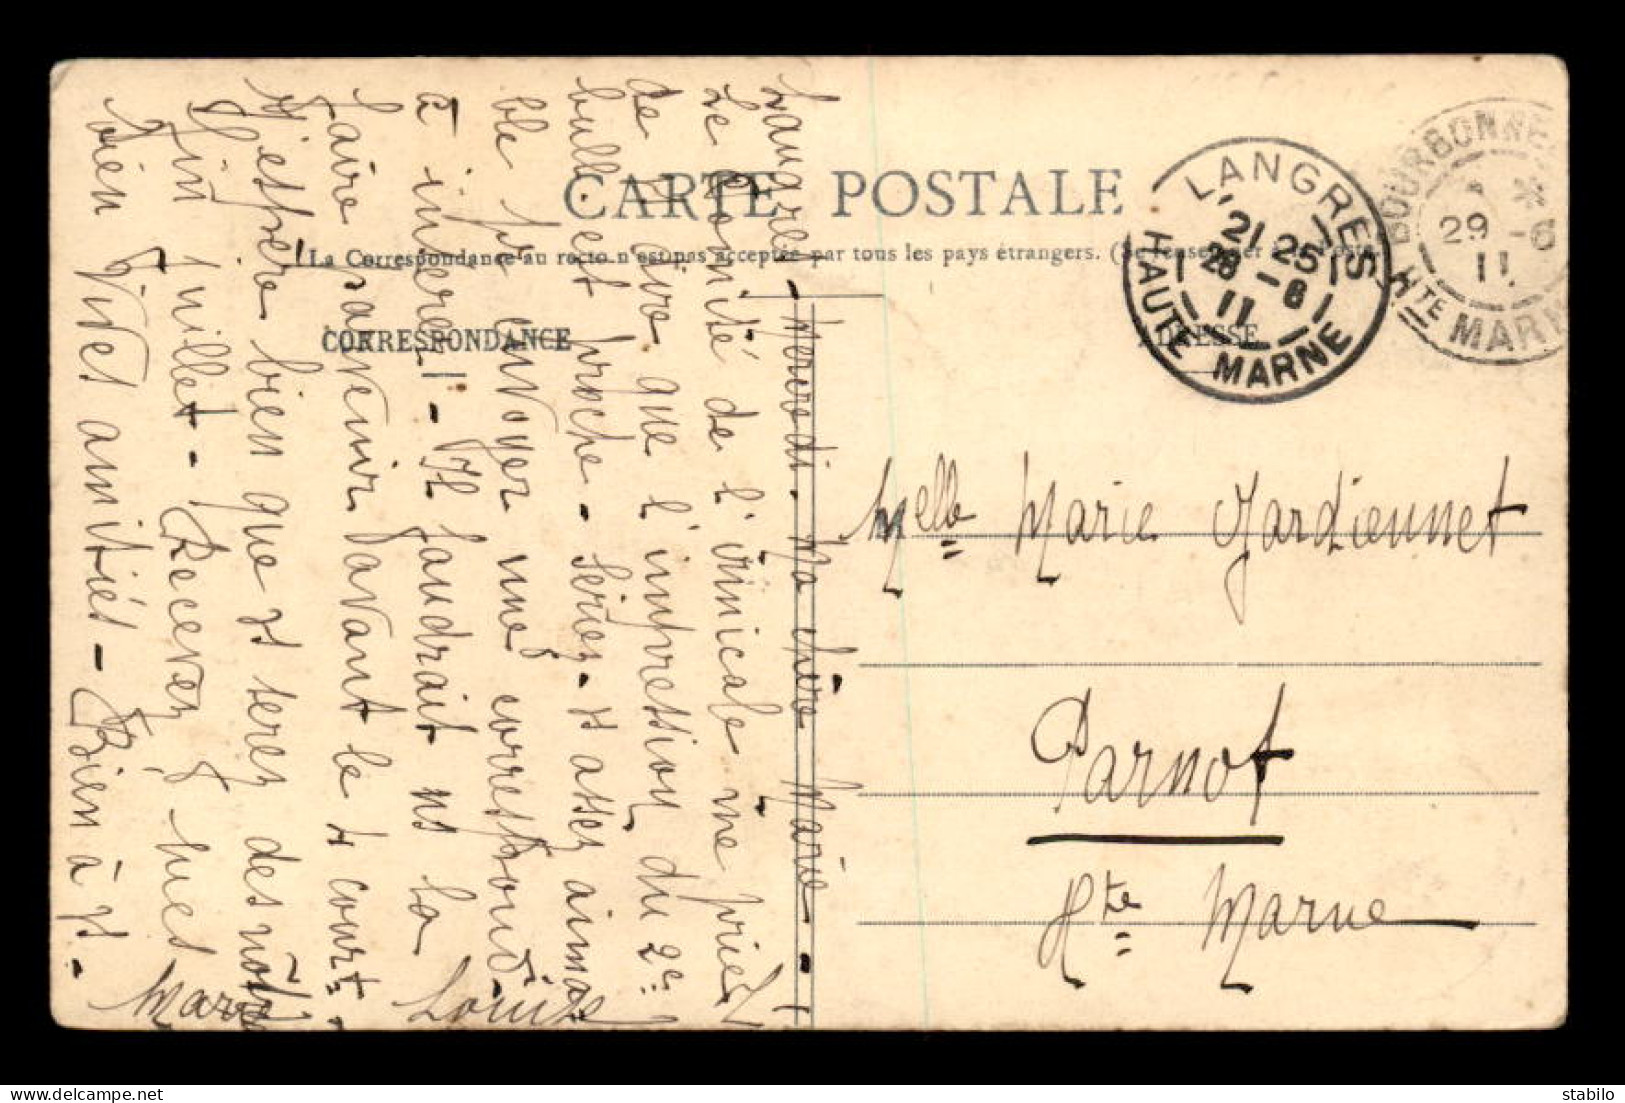 CARTE POSTALE
La Correspondance au recto n'est pas acceptée par tous les pays étrangers. (Se renseigner à la Poste)
CORRESPONDANCE
ADRESSE
LANGRES
21 25
28 - 6
11
HAUTE MARNE
BOURBONNE
29 - 6
11
HTE MARNE
Melle Marie Jardiennet
Parnot
Hte Marne
Langres - Mercredi. Ma chère Marie - !
Le Comité de l'Amicale me prie
de vs dire que l'impression du 2e
bulle. est proche - Seriez-vs assez aima
ble pr envoyer une correspond
à insérer! - Il faudrait ns la
faire parvenir avant le 4 court.
J'espère bien que vs serez des nôtres
fin Juillet - Recevez mes
bien vives amitiés - Bien à vs -
Marie Louise